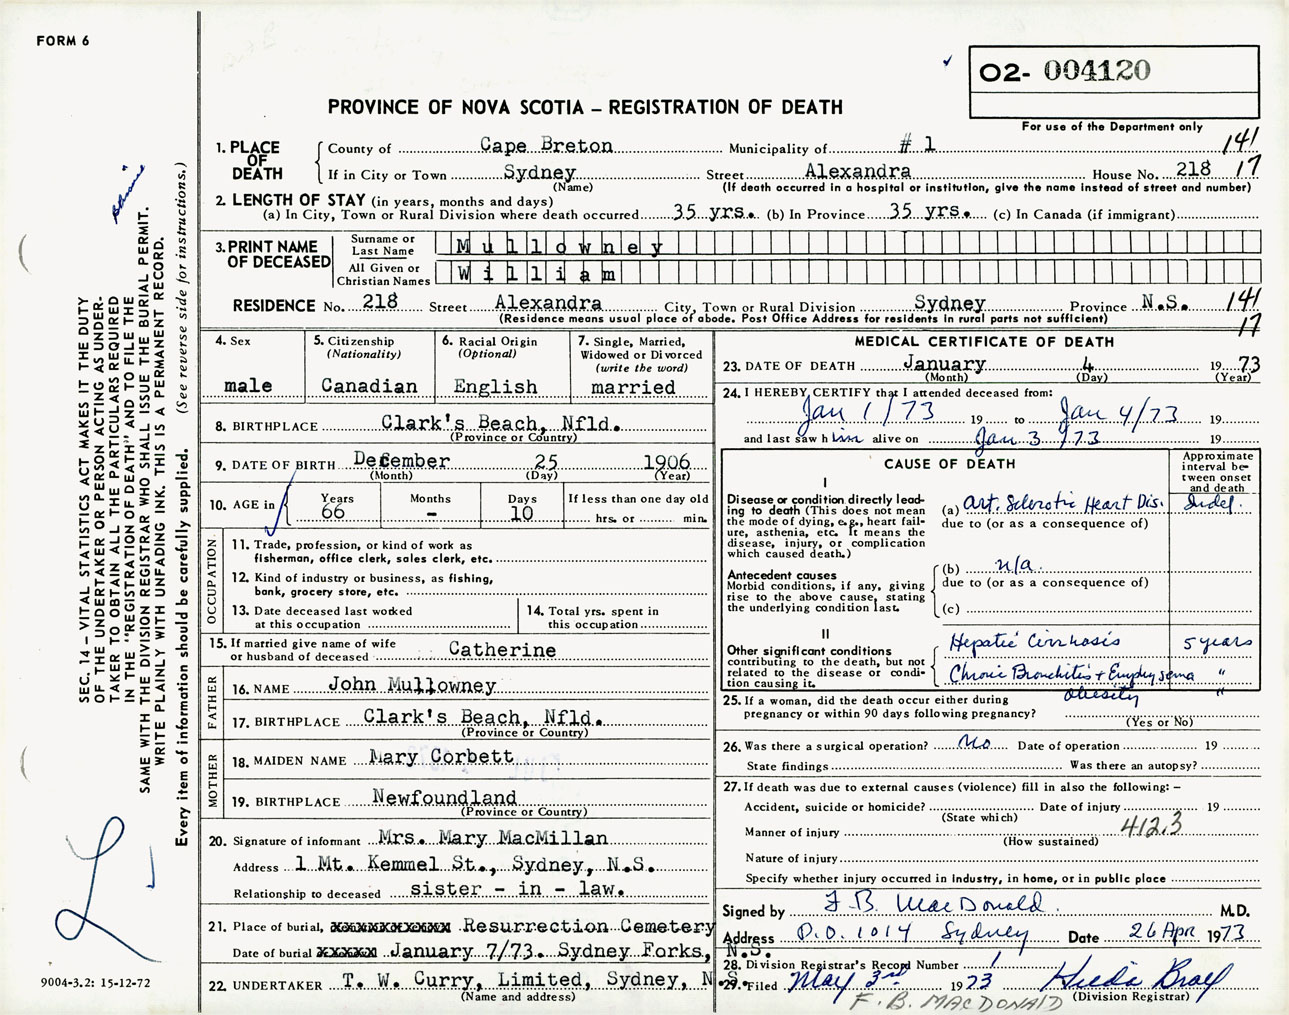 FORM 6
O2- 004120
For use of the Department only
PROVINCE OF NOVA SCOTIA – REGISTRATION OF DEATH
1. PLACE OF DEATH
County of Cape Breton Municipality of # 1 141
If in City or Town Sydney Street Alexandra House No. 218 17
(Name) (If death occurred in a hospital or institution, give the name instead of street and number)
2. LENGTH OF STAY (in years, months and days)
(a) In City, Town or Rural Division where death occurred 35 yrs. (b) In Province 35 yrs. (c) In Canada (if immigrant)
3. PRINT NAME OF DECEASED
Surname or Last Name Mullowney
All Given or Christian Names William
RESIDENCE No. 218 Street Alexandra City, Town or Rural Division Sydney Province N.S. 141
(Residence means usual place of abode. Post Office Address for residents in rural parts not sufficient) 17
4. Sex
male
5. Citizenship
(Nationality)
Canadian
6. Racial Origin
(Optional)
English
7. Single, Married,
Widowed or Divorced
(write the word)
married
8. BIRTHPLACE Clark's Beach, Nfld.
(Province or Country)
9. DATE OF BIRTH December 25 1906
(Month) (Day) (Year)
10. AGE in
Years Months Days If less than one day old
66 – 10 hrs. or min.
OCCUPATION
11. Trade, profession, or kind of work as
fisherman, office clerk, sales clerk, etc.
12. Kind of industry or business, as fishing,
bank, grocery store, etc.
13. Date deceased last worked
at this occupation
14. Total yrs. spent in
this occupation
15. If married give name of wife
or husband of deceased Catherine
FATHER
16. NAME John Mullowney
17. BIRTHPLACE Clark's Beach, Nfld.
(Province or Country)
MOTHER
18. MAIDEN NAME Mary Corbett
19. BIRTHPLACE Newfoundland
(Province or Country)
20. Signature of informant Mrs. Mary MacMillan
Address 1 Mt. Kemmel St., Sydney, N.S.
Relationship to deceased sister - in - law.
21. Place of burial, Resurrection Cemetery
Date of burial January 7/73. Sydney Forks, N.S.
22. UNDERTAKER T. W. Curry, Limited, Sydney, N.S.
(Name and address)
MEDICAL CERTIFICATE OF DEATH
23. DATE OF DEATH January 4 19 73
(Month) (Day) (Year)
24. I HEREBY CERTIFY that I attended deceased from:
Jan 1/73 19 to Jan 4/73 19
and last saw him alive on Jan 3 /73 19
CAUSE OF DEATH
Approximate
interval be-
tween onset
and death
I
Disease or condition directly lead-
ing to death (This does not mean
the mode of dying, e.g., heart fail-
ure, asthenia, etc. It means the
disease, injury, or complication
which caused death.)
(a) Art. Sclerotic Heart Dis. Indef.
due to (or as a consequence of)
Antecedent causes
Morbid conditions, if any, giving
rise to the above cause, stating
the underlying condition last.
(b) n/a.
due to (or as a consequence of)
(c)
II
Other significant conditions
contributing to the death, but not
related to the disease or condi-
tion causing it.
Hepatic Cirrhosis 5 years
Chronic Bronchitis + Emphysema "
obesity "
25. If a woman, did the death occur either during
pregnancy or within 90 days following pregnancy?
(Yes or No)
26. Was there a surgical operation? No Date of operation 19
State findings Was there an autopsy?
27. If death was due to external causes (violence) fill in also the following: –
Accident, suicide or homicide? Date of injury 19
(State which)
Manner of injury 412.3
(How sustained)
Nature of injury
Specify whether injury occurred in industry, in home, or in public place
Signed by F. B. MacDonald M.D.
Address P.O. 1014 Sydney Date 26 Apr 1973
28. Division Registrar's Record Number 1
29. Filed May 3rd 1973 Hilda Bray
F. B. MACDONALD (Division Registrar)
SEC. 14 – VITAL STATISTICS ACT MAKES IT THE DUTY
OF THE UNDERTAKER OR PERSON ACTING AS UNDER-
TAKER TO OBTAIN ALL THE PARTICULARS REQUIRED
IN THE "REGISTRATION OF DEATH" AND TO FILE THE
SAME WITH THE DIVISION REGISTRAR WHO SHALL ISSUE THE BURIAL PERMIT.
WRITE PLAINLY WITH UNFADING INK. THIS IS A PERMANENT RECORD.
Every item of information should be carefully supplied. (See reverse side for instructions.)
9004-3.2: 15-12-72